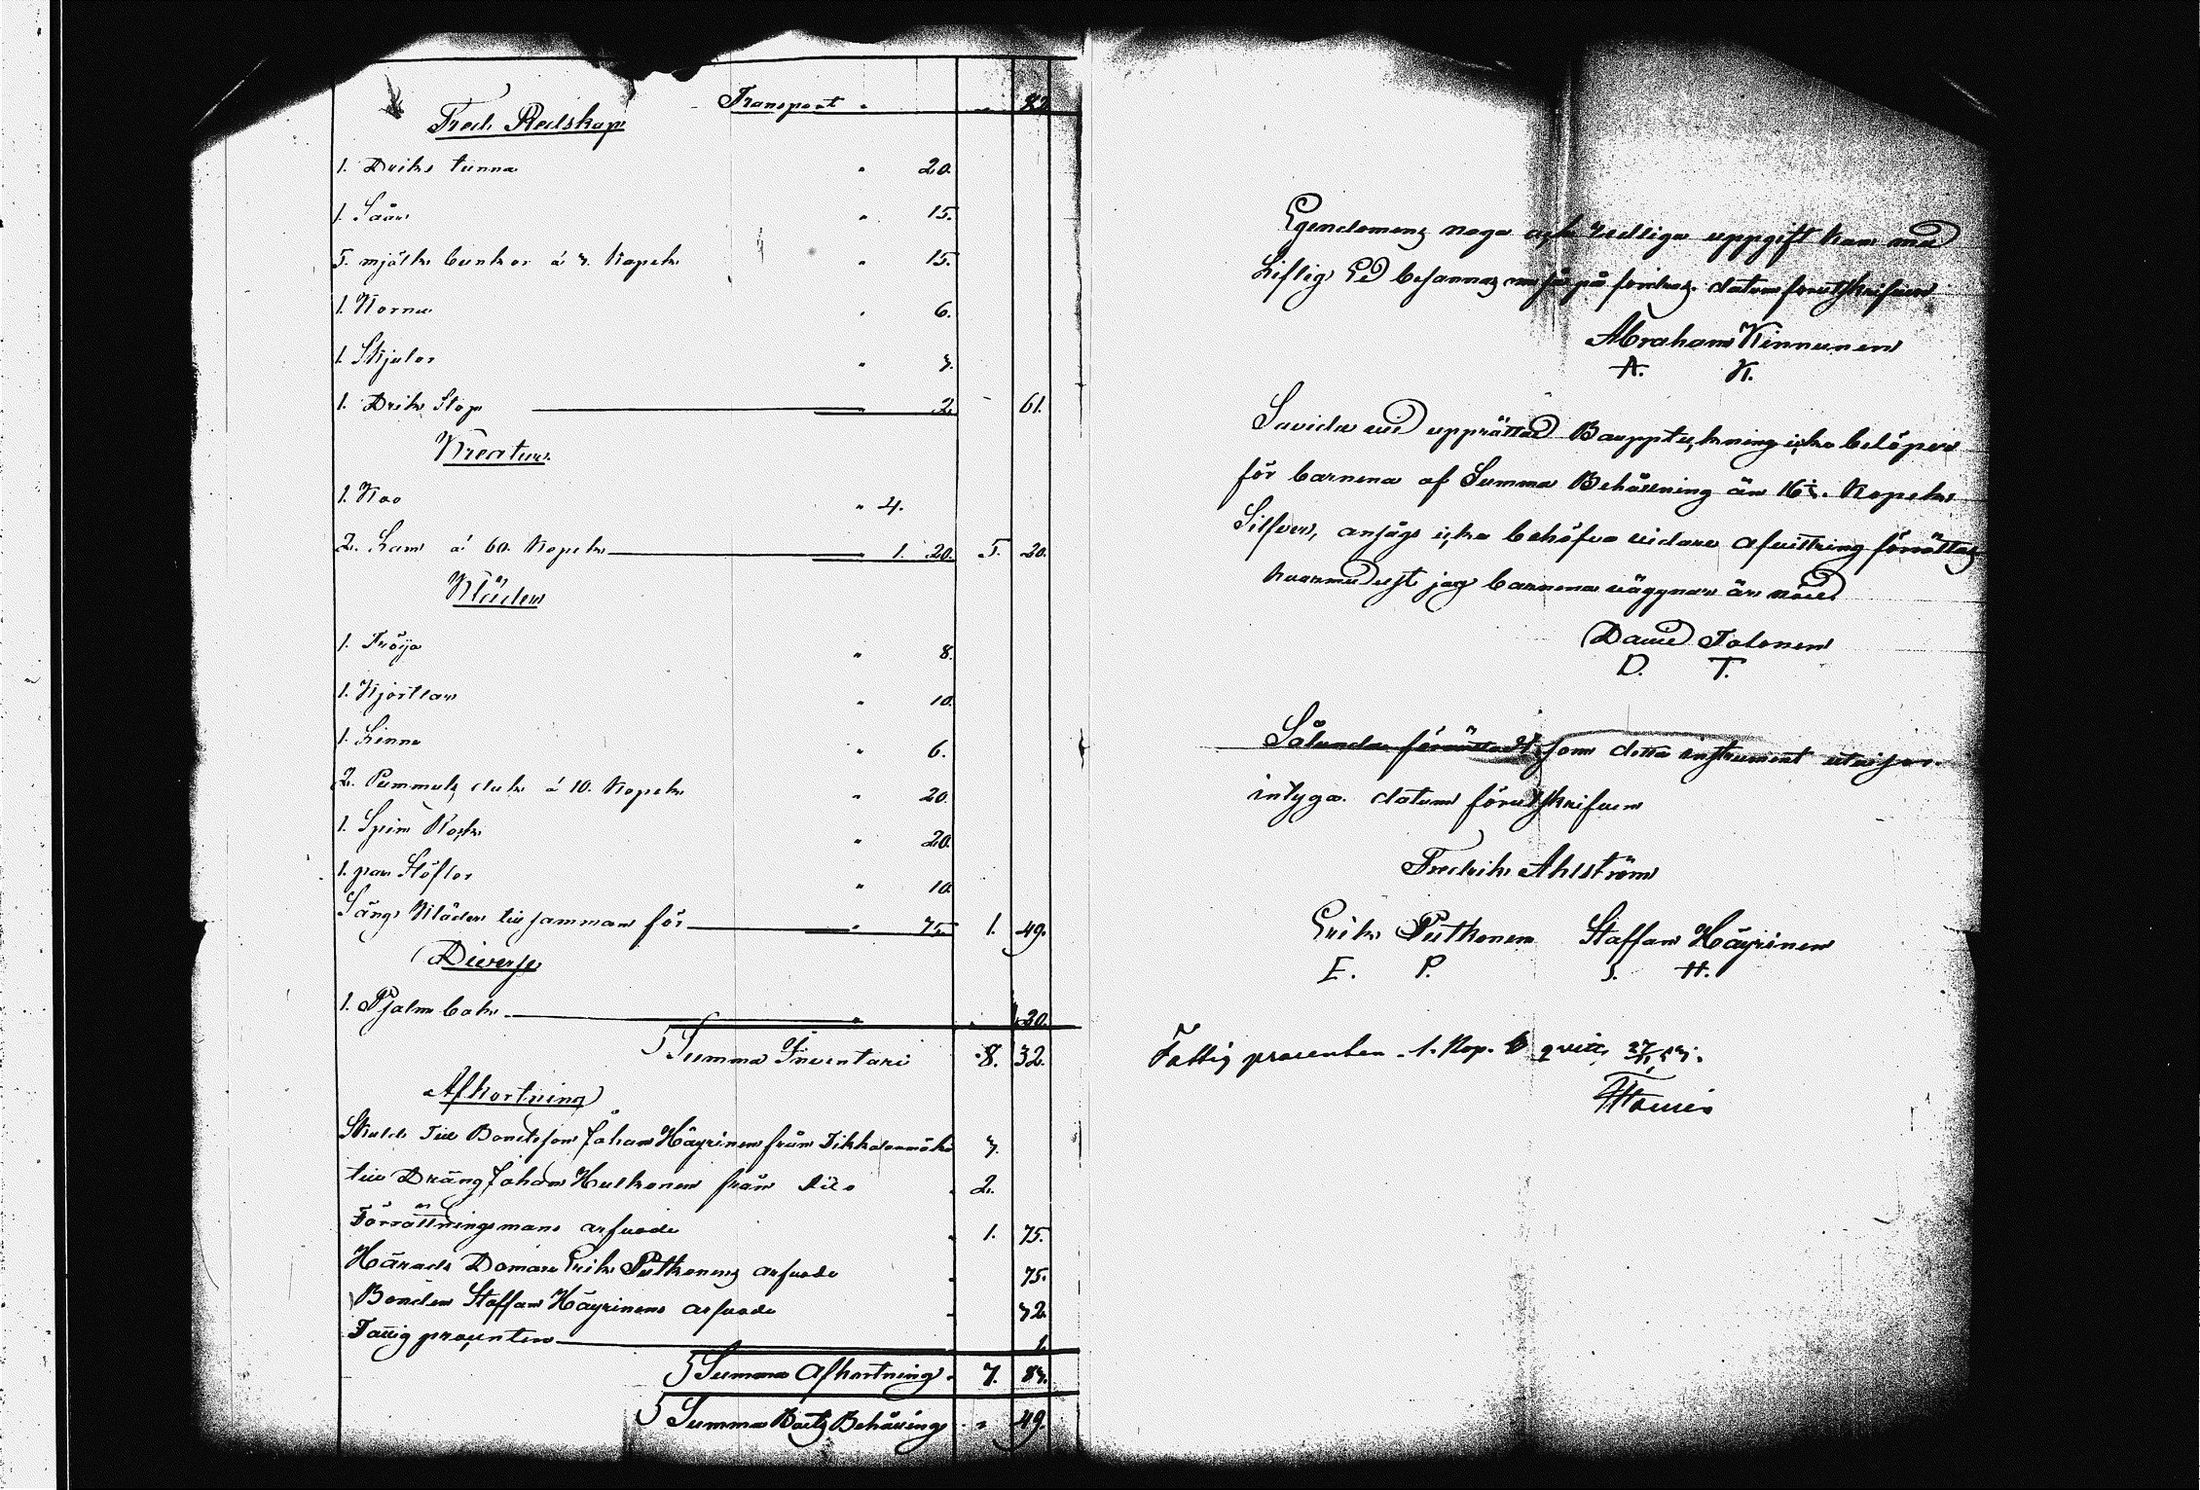 Transport " " 82
Träd Redskap
1. Dricks tunna " 20.
1. Såår " 15.
5. mjölk bunkor á 3. Kopek " 15.
1. Kornu " 6.
1. Skjulor " 3.
1. Dricks Stop 2. - 61.
Kreatur
1. Koo " 4.
2. Lam á 60. Kopek " 1. 20. 5. 20.
Kläder
1. Tröija " 8.
1. Kjortlar " 10.
1. Linne " 6.
2. Pummuls duk á 10. Kopek " 20.
1. Spin Rock " 20.
1. par Stöflor " 10.
Säng Kläder till samman för " 75. 1. 49.
Diverse
1. Psalm bok " 30.
Summa Inventari 8. 32.
Afkortning
Skuld Till Bondeson Johan Häyrinen från Tikkalanmäki 3.
till Dräng Johan Hulkonen från dito 2.
Förrättningsmans arfvode 1. 75.
Härads Domare Erik Putkonens arfvode 75.
Bonden Staffan Häyrinens arfvode 32.
Fattig procenten 1.
Summa Afkortning 7. 83.
Summa Boets Behållning " 49.
Egendomens noga och redliga uppgift kan med
Liflig Ed besannas om så på fordras. datum förutskrifven
Abraham Kinnunen
A. K.
Savida vid upprättad Bouppteckning icke belöper
för barnena af Summa Behållning än 16⅓. Kopek
Silfver, ansågs icke behöfva vidare afvittring förrättas
hvarmed äst jag barnenas vägnar är nöjd
David Tolonen
D. T.
Sålunda förrättadt som detta instrument utvisar
intyga. datum förutskrifven
Fredrik Ahlström
Erik Putkonen Staffan Häyrinen
E. P. S. H.
Fattig procenten 1. Kop. qvitt, 27/11 53.